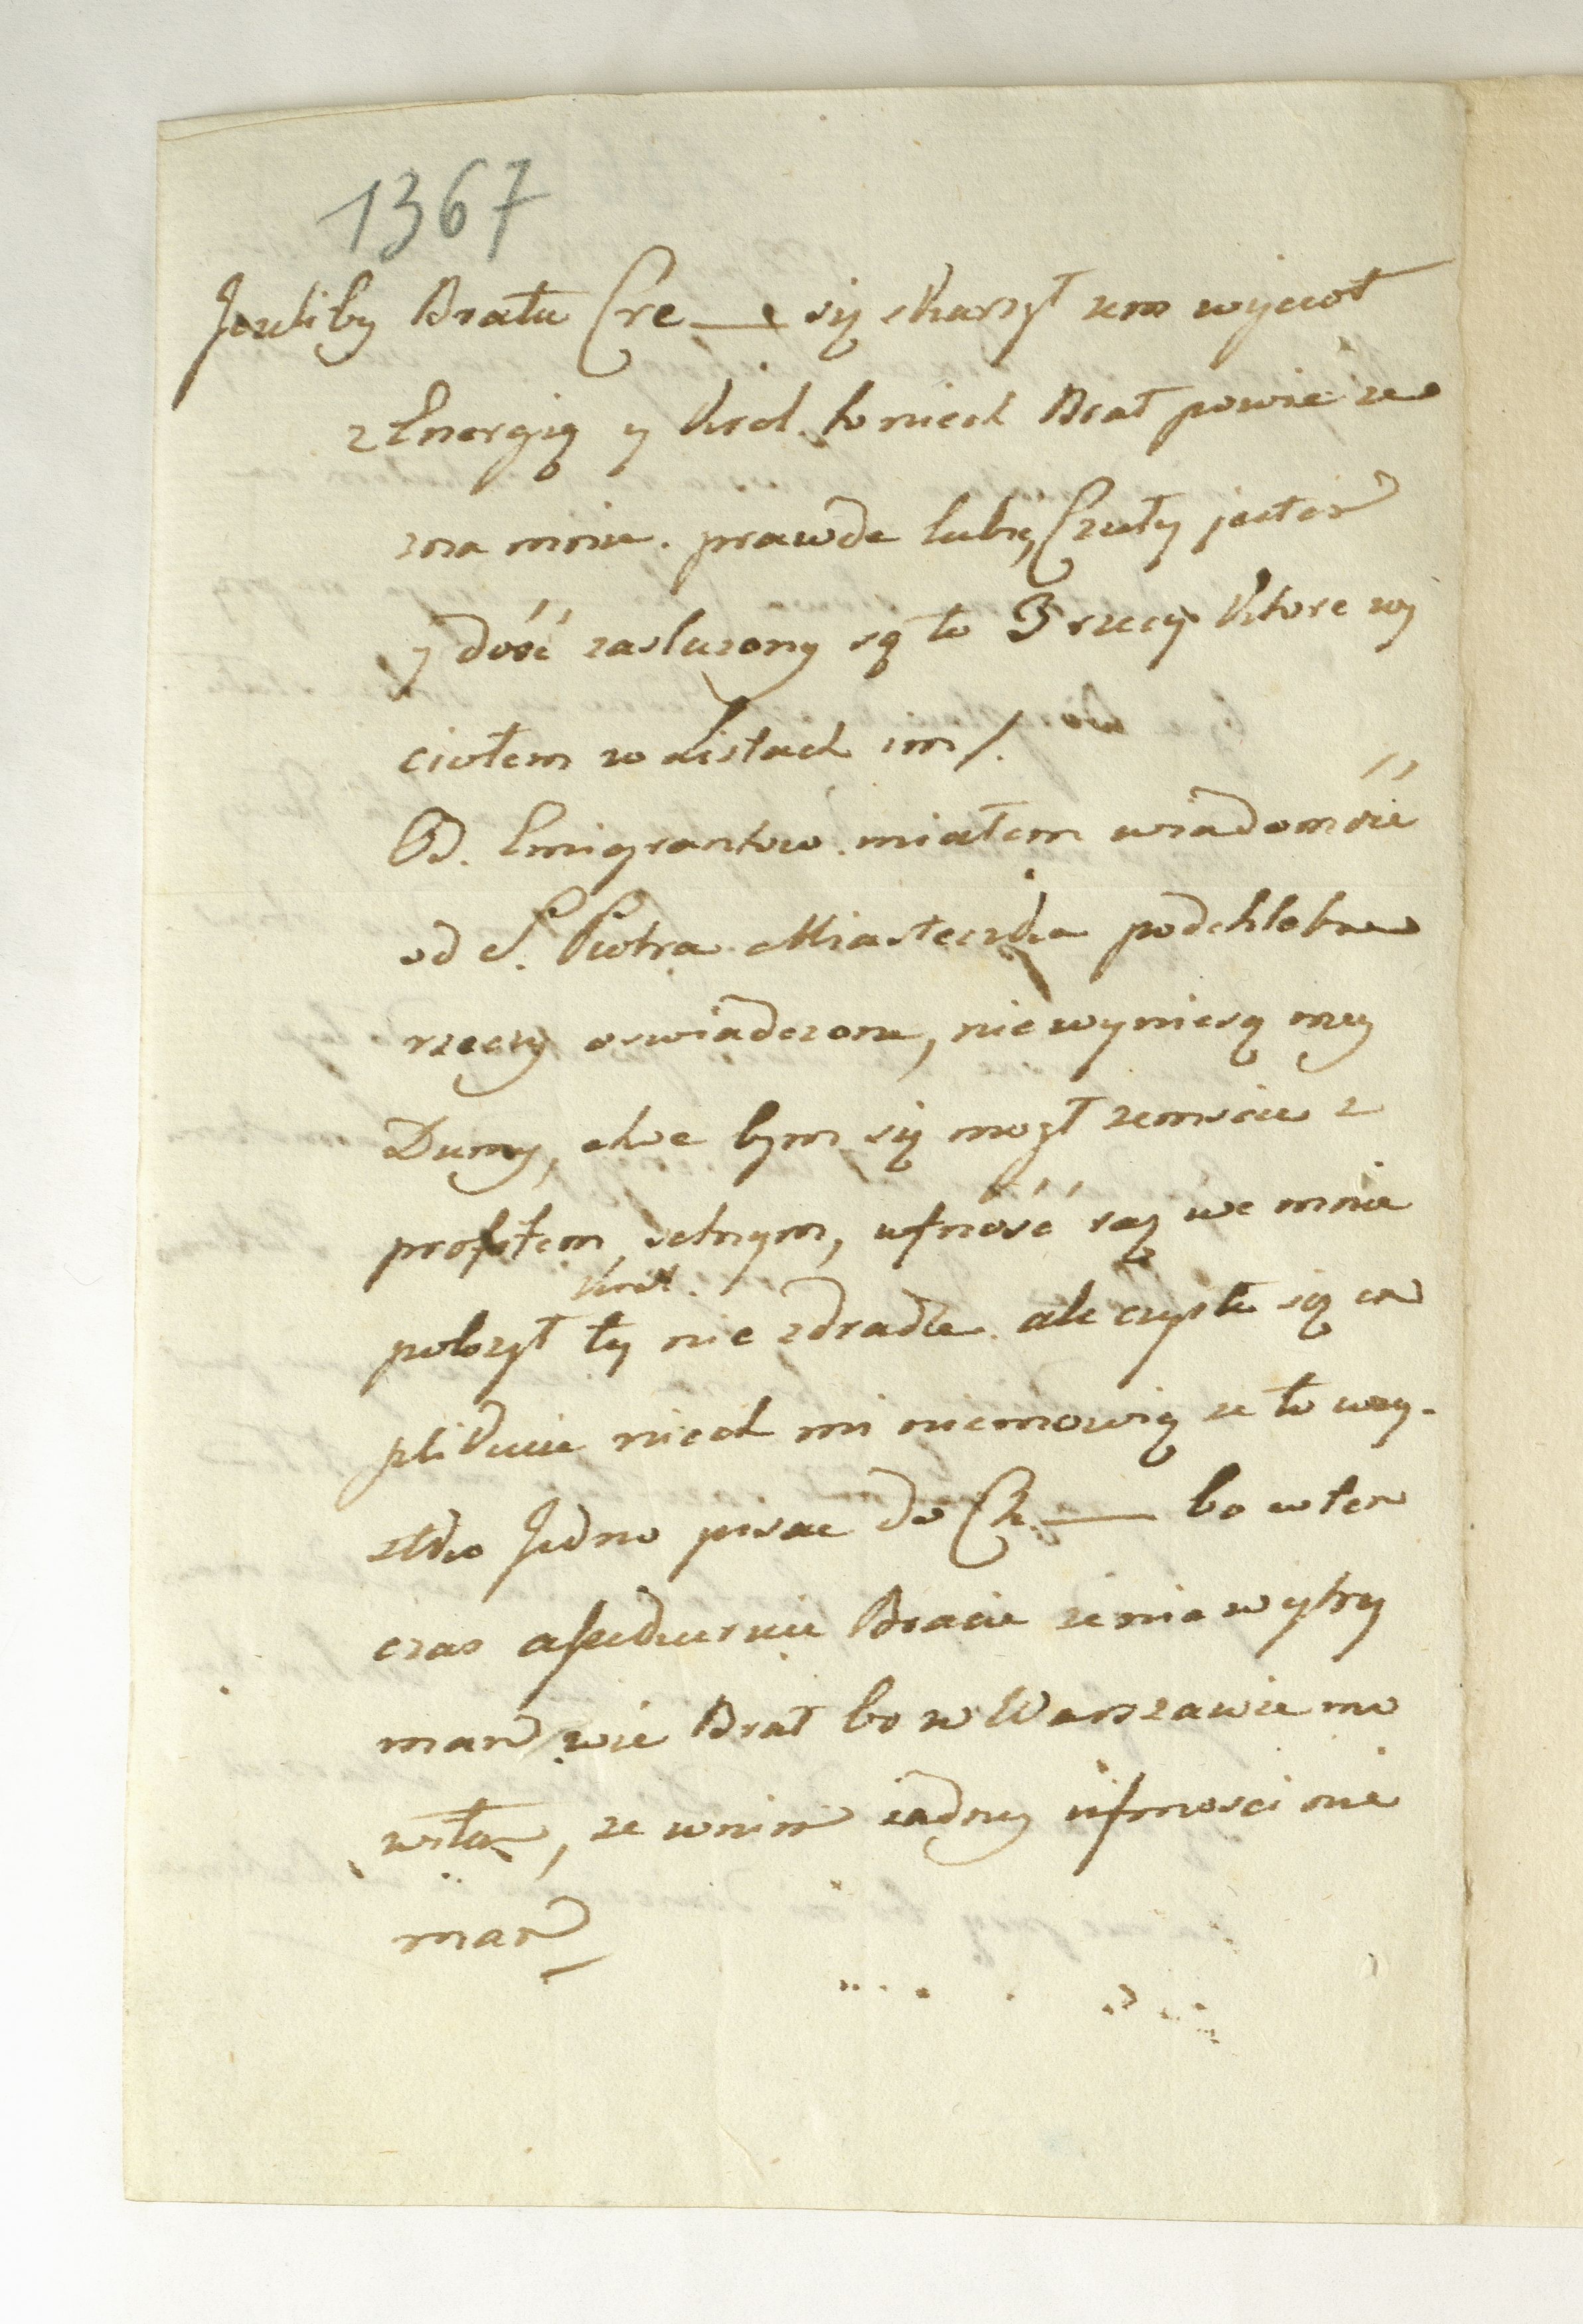 1367
Jezeliby Bratu Cre—e się skarzył zem wycioł
z Energią y Krol. to niech Brat powie ze
zna mnie. prawde lubię, Czuły jestem
y dość zasluzony są to 3 rzeczy Ktore wy
ciołem w Listach im /.
Od. Emigrantow. miałem wiadomośċ
od S. Piotra Miasteczka podchlebne
rzeczy oswiadczone, nie wyniosą mey
Dumy, choc bym się mogł zemscic z
profitem setnym, ufność raz we mnie
Krol.
polozył ty nie zdradze. ale czyste są ex
plikucie niech mi niemowią ze to wszy-
stko Jedno pisac do Ch.— bo w ten
czas assekuruie Bracie ze nie wytrzy
mam wie Brat bo w Warszawie mo
wiłem, ze w nim zadney ufnosci nie
mam